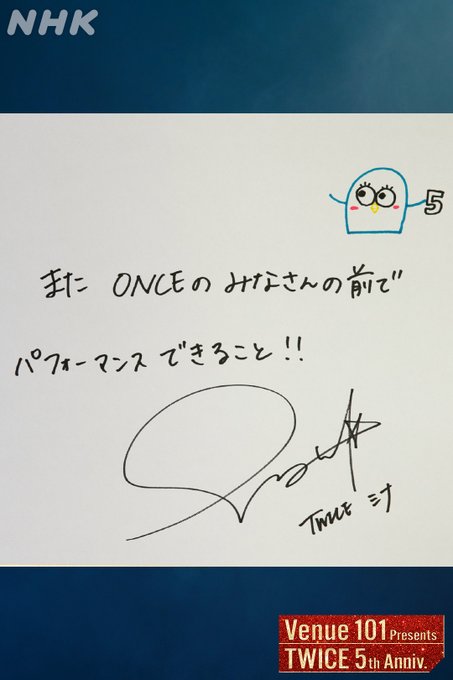 NHK
5
また ONCEの みなさんの前で
パフォーマンス できること!!
TWICE ミナ
Venue 101 Presents
TWICE 5th Anniv.